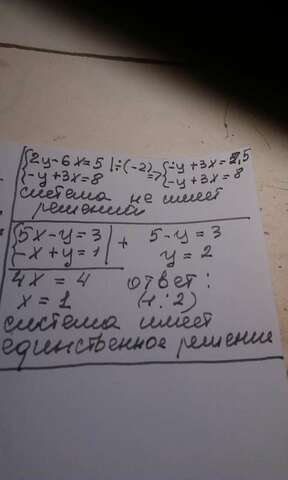 {2y-6x=5 |÷(-2) => {-y+3x=2,5
{-y+3x=8 {-y+3x=8
система не имеет
решений
{5x-y=3 | + 5-y=3
{-x+y=1 y=2
4x=4 ответ:
x=1 (1:2)
система имеет
единственное решение